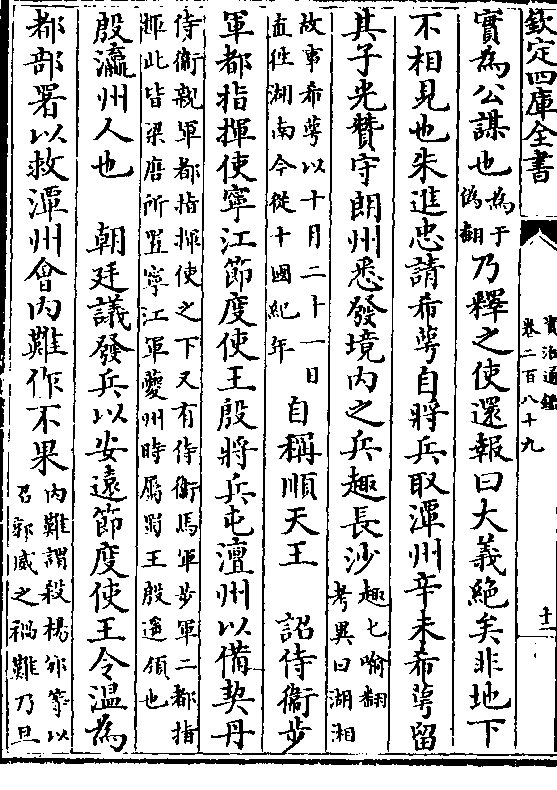 欽定四庫全書
資治通鑑
卷二百八十九
十二
實為公謀也為于偽翻乃釋之使還報曰大義絕矣非地下
不相見也朱進忠請希萼自將兵取潭州辛未希萼留
其子光贊守朗州悉發境内之兵趣長沙趣七喻翻考異曰湖湘
故事希萼以十月二十一日直往湖南今從十國紀年自稱順天王　詔侍衛步
軍都指揮使寧江節度使王殷將兵屯澶州以備契丹
侍衛親軍都指揮使之下又有侍衛馬軍步軍二都指揮此皆梁唐所置寧江軍夔州時屬蜀王殷遥領也
殷瀛州人也　朝廷議發兵以安遠節度使王令温為
都部署以救潭州會内難作不果内難謂殺楊邠等以召郭威之禍難乃旦